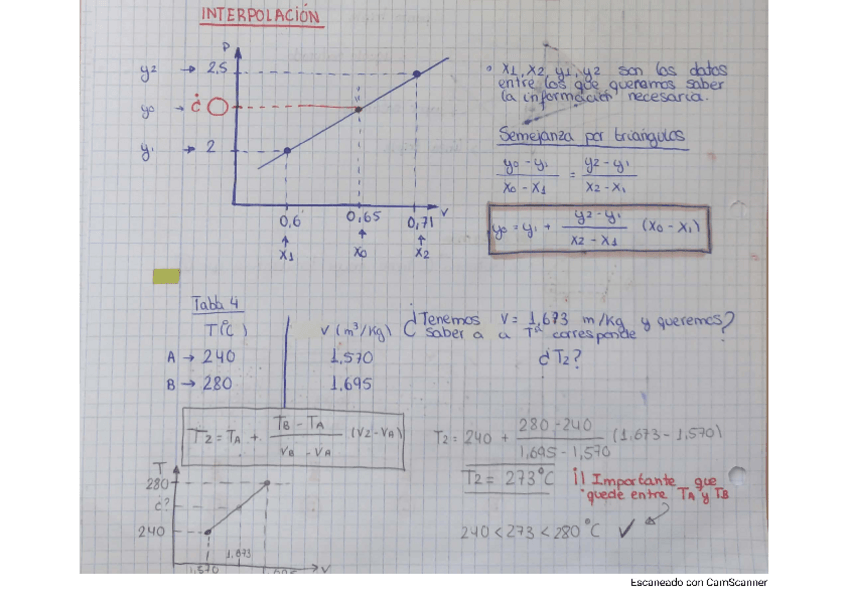 INTERPOLACIÓN
P
y2 → 2,5
y0 → ¿
y1 → 2
0,6 0,65 0,71 V
x1 x0 x2
• x1, x2, y1, y2 son los datos
entre los que queramos saber
la información necesaria.
Semejanza por triángulos
y0 - y1 / x0 - x1 = y2 - y1 / x2 - x1
y0 = y1 + y2 - y1 / x2 - x1 (x0 - x1)
Tabla 4
T(ºC) V (m³/Kg)
A → 240 1,570
B → 280 1,695
¿Tenemos V = 1,673 m/Kg y queremos?
saber a a Tª corresponde
¿T2?
T2 = TA + TB - TA / VB - VA (V2 - VA)
T2 = 240 + 280 - 240 / 1,695 - 1,570 (1,673 - 1,570)
T2 = 273ºC
¡! Importante que
quede entre TA y TB
240 < 273 < 280 ºC ✓
T
280
¿?
240
1,673
1,570 V
Escaneado con CamScanner